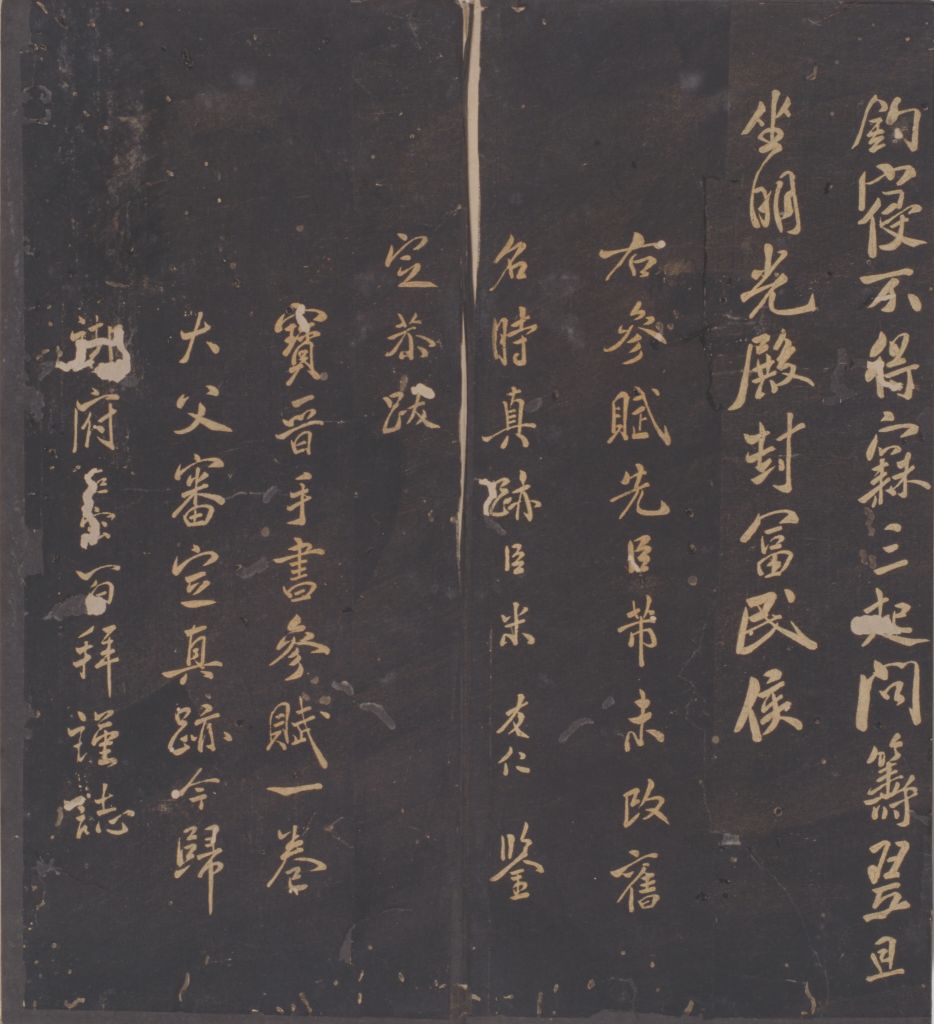 鈞寢不得寐三起問籌翌旦
坐明光殿封冨民侯
右參賦先臣芾未改舊
名時真跡臣米友仁鑒
定恭跋
寶晉手書參賦一卷
大父審定真跡今歸
御府百拜謹誌